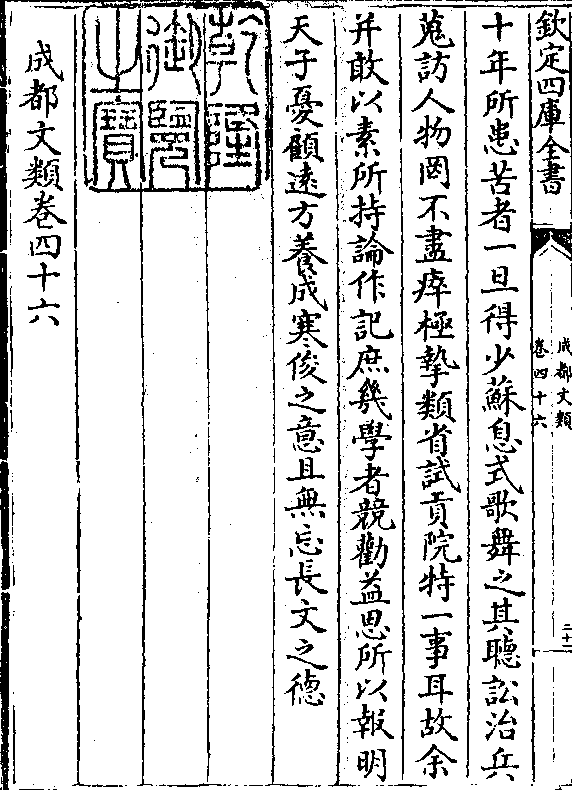 欽定四庫全書
成都文類
卷四十六
二十二
十年所患苦者一旦得少蘇息式歌舞之其聽訟治兵
蒐訪人物罔不盡瘁極摯類省試貢院特一事耳故余
并敢以素所持論作記庶幾學者競勸益思所以報明
天子憂顧遠方養成寒俊之意且無忘長文之德
乾隆
御覽
之寶
成都文類卷四十六